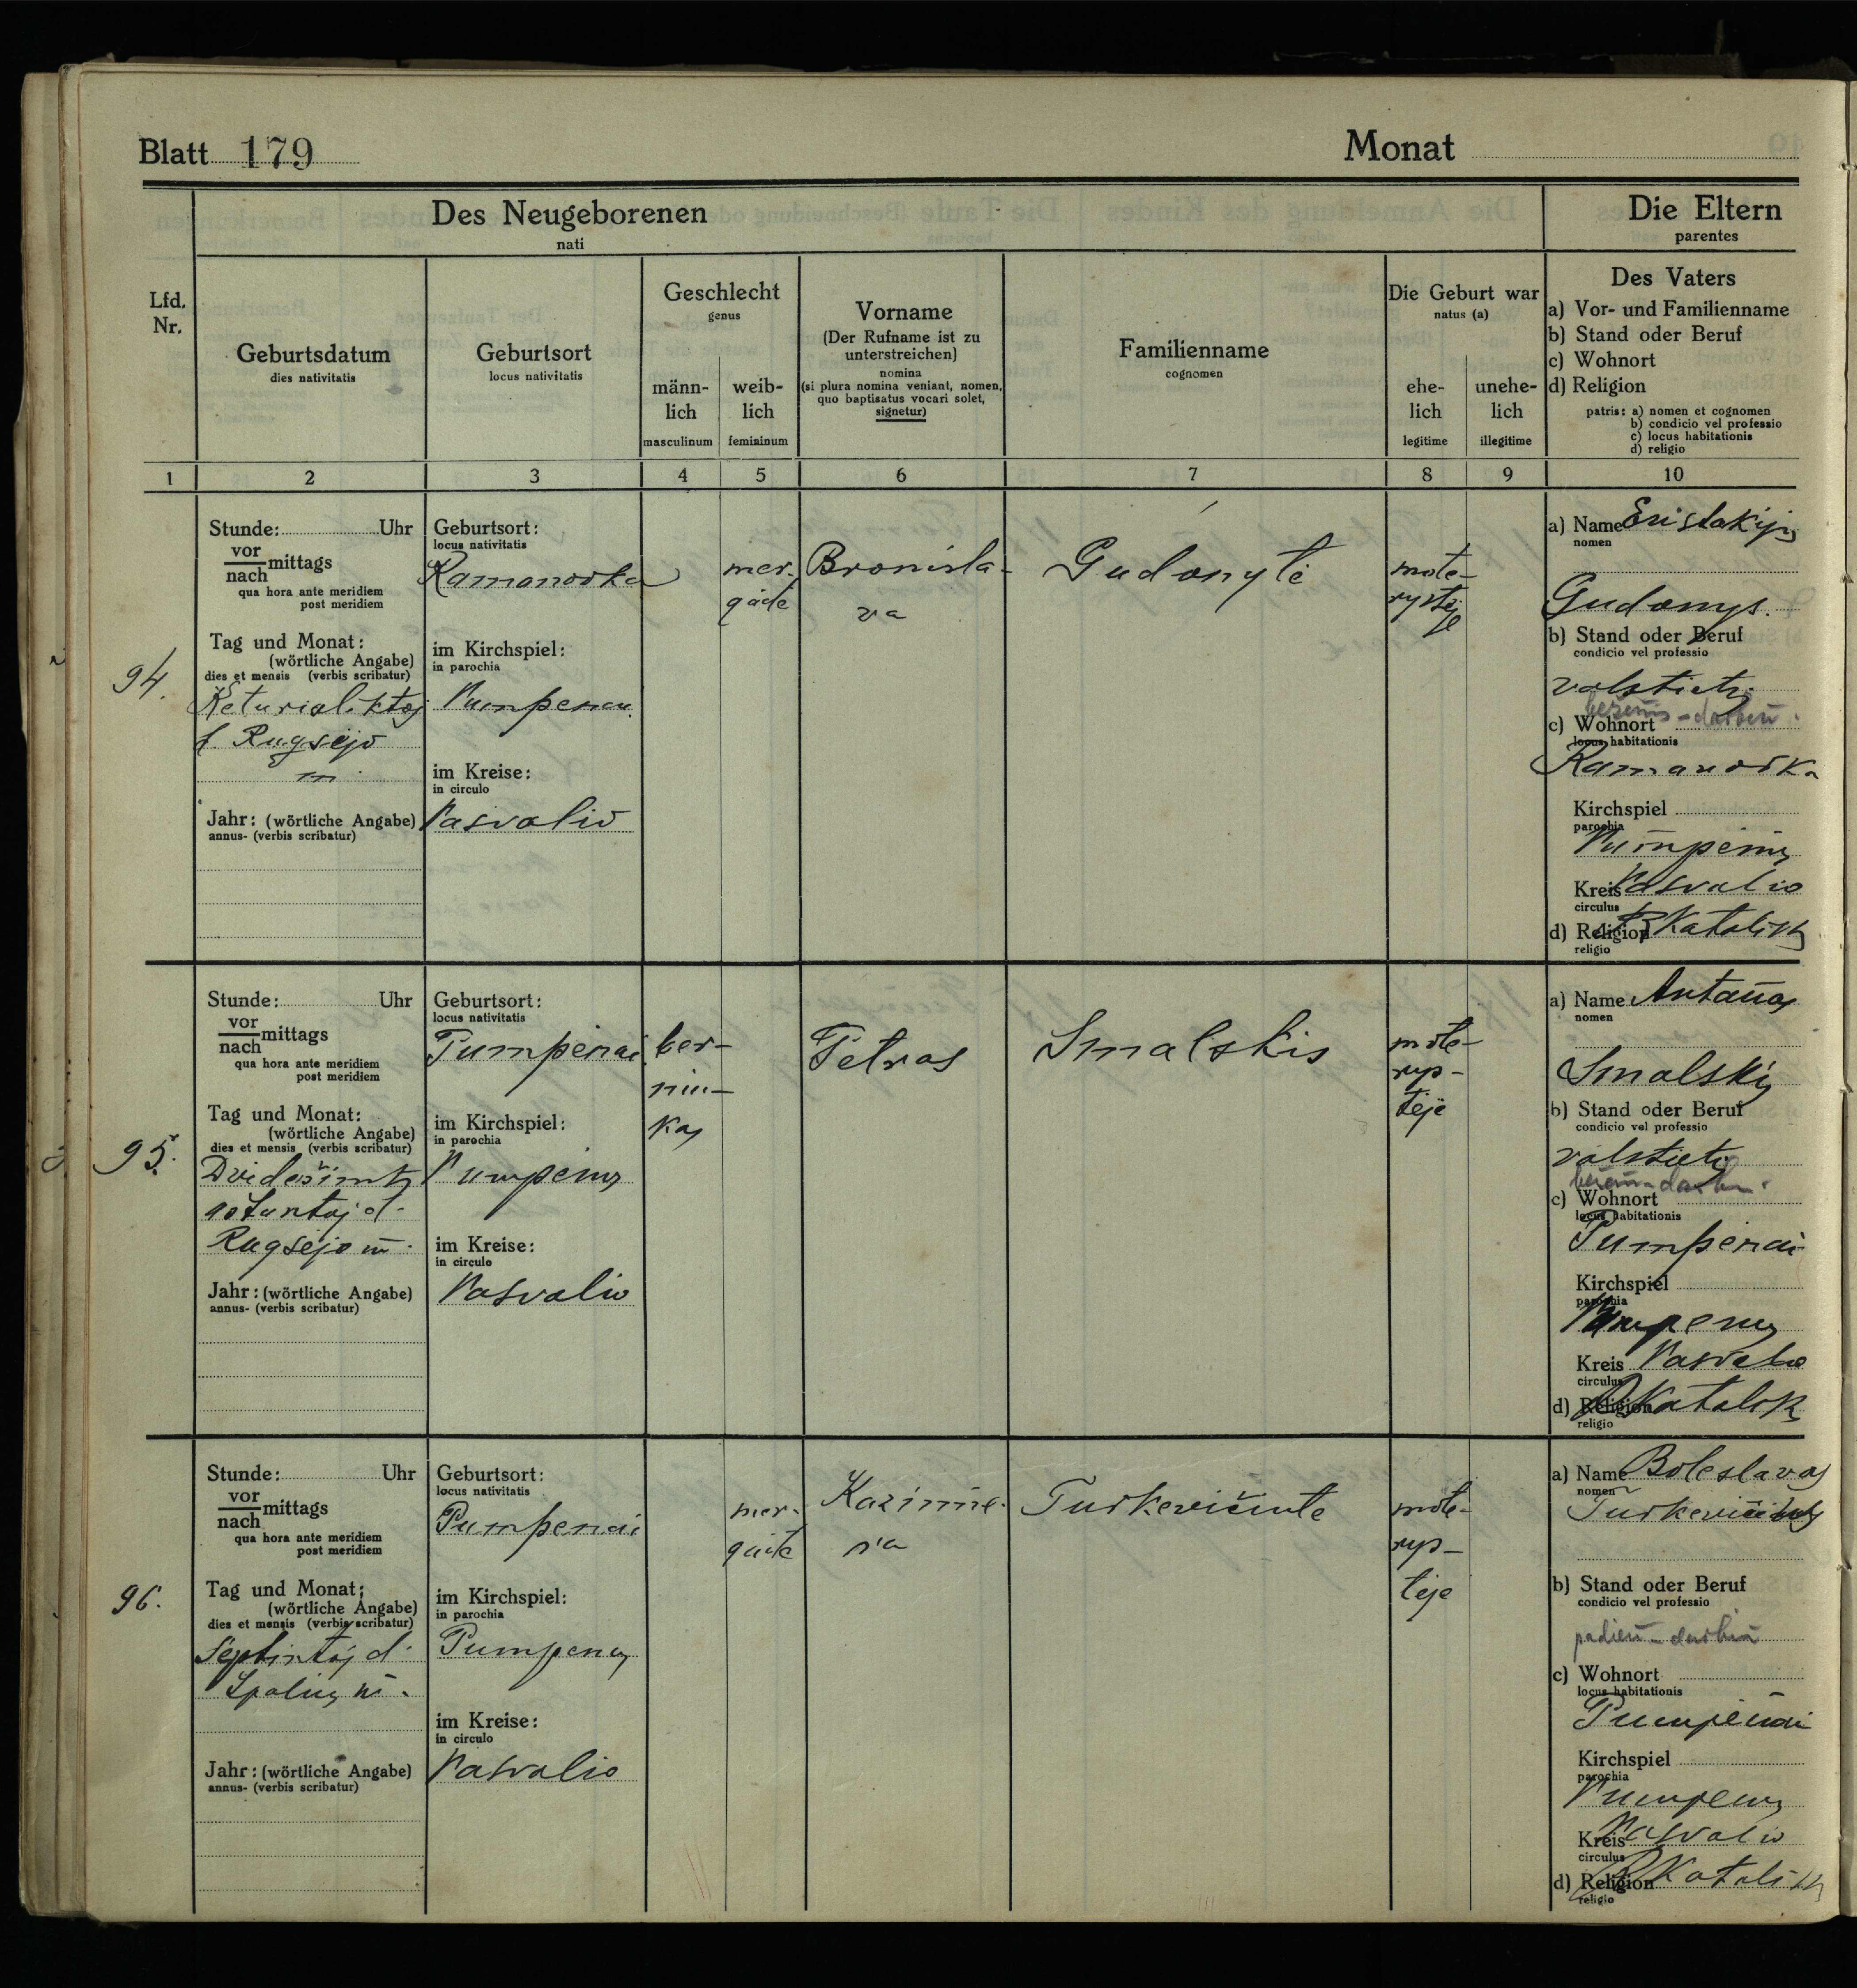 Blatt 179
Monat
Des Neugeborenen
nati
Die Eltern
parentes
Lfd.
Nr.
Geburtsdatum
dies nativitatis
Geburtsort
locus nativitatis
Geschlecht
genus
männ-
lich
masculinum
weib-
lich
femininum
Vorname
(Der Rufname ist zu
unterstreichen)
nomina
(si plura nomina veniant, nomen,
quo baptisatus vocari solet,
signetur)
Familienname
cognomen
Die Geburt war
natus (a)
ehe-
lich
legitime
unehe-
lich
illegitime
Des Vaters
a) Vor- und Familienname
b) Stand oder Beruf
c) Wohnort
d) Religion
patris: a) nomen et cognomen
b) condicio vel professio
c) locus habitationis
d) religio
1 2 3 4 5 6 7 8 9 10
94.
Stunde: Uhr
vor
nach mittags
qua hora ante meridiem
post meridiem
Tag und Monat:
(wörtliche Angabe)
dies et mensis (verbis scribatur)
Keturioliktoj
d. Rugsėjo
m.
Jahr: (wörtliche Angabe)
annus- (verbis scribatur)
Geburtsort:
locus nativitatis
Ramanovka
im Kirchspiel:
in parochia
im Kreise:
in circulo
Pasvalio
mer-
gaitė
Bronisla-
va
Gudonytė
mote-
rystėje
a) Name
nomen
Gudonys.
b) Stand oder Beruf
condicio vel professio
valstietis
c) Wohnort
locus habitationis
Ramanovka
Kirchspiel
parochia
Pumpėnų
Kreis Pasvalio
circulus
d) Religion R Katalikų
religio
95.
Stunde: Uhr
vor
nach mittags
qua hora ante meridiem
post meridiem
Tag und Monat:
(wörtliche Angabe)
dies et mensis (verbis scribatur)
Dvidešimtų
aštuntoj d.
Rugsėjo m.
Jahr: (wörtliche Angabe)
annus- (verbis scribatur)
Geburtsort:
locus nativitatis
Pumpėnai
im Kirchspiel:
in parochia
Pumpėnų
im Kreise:
in circulo
Pasvalio
ber-
niu-
kas
Petras
Smalskis
mote-
rys-
tėje
a) Name Antanas
nomen
Smalskis
b) Stand oder Beruf
condicio vel professio
valstietis
c) Wohnort
locus habitationis
Pumpėnai
Kirchspiel
parochia
Pumpėnų
Kreis Pasvalio
circulus
d) Religion R Katalikų
religio
96.
Stunde: Uhr
vor
nach mittags
qua hora ante meridiem
post meridiem
Tag und Monat:
(wörtliche Angabe)
dies et mensis (verbis scribatur)
Septintoj d.
Spalių m.
Jahr: (wörtliche Angabe)
annus- (verbis scribatur)
Geburtsort:
locus nativitatis
Pumpėnai
im Kirchspiel:
in parochia
Pumpėnų
im Kreise:
in circulo
Pasvalio
mer-
gaitė
Kazimie-
ra
Turkevičiute
mote-
rys-
tėje
a) Name Boleslavas
nomen
Turkevičius
b) Stand oder Beruf
condicio vel professio
padien-darbin
c) Wohnort
locus habitationis
Pumpėnai
Kirchspiel
parochia
Pumpėnų
Kreis Pasvalio
circulus
d) Religion R Katalikų
religio